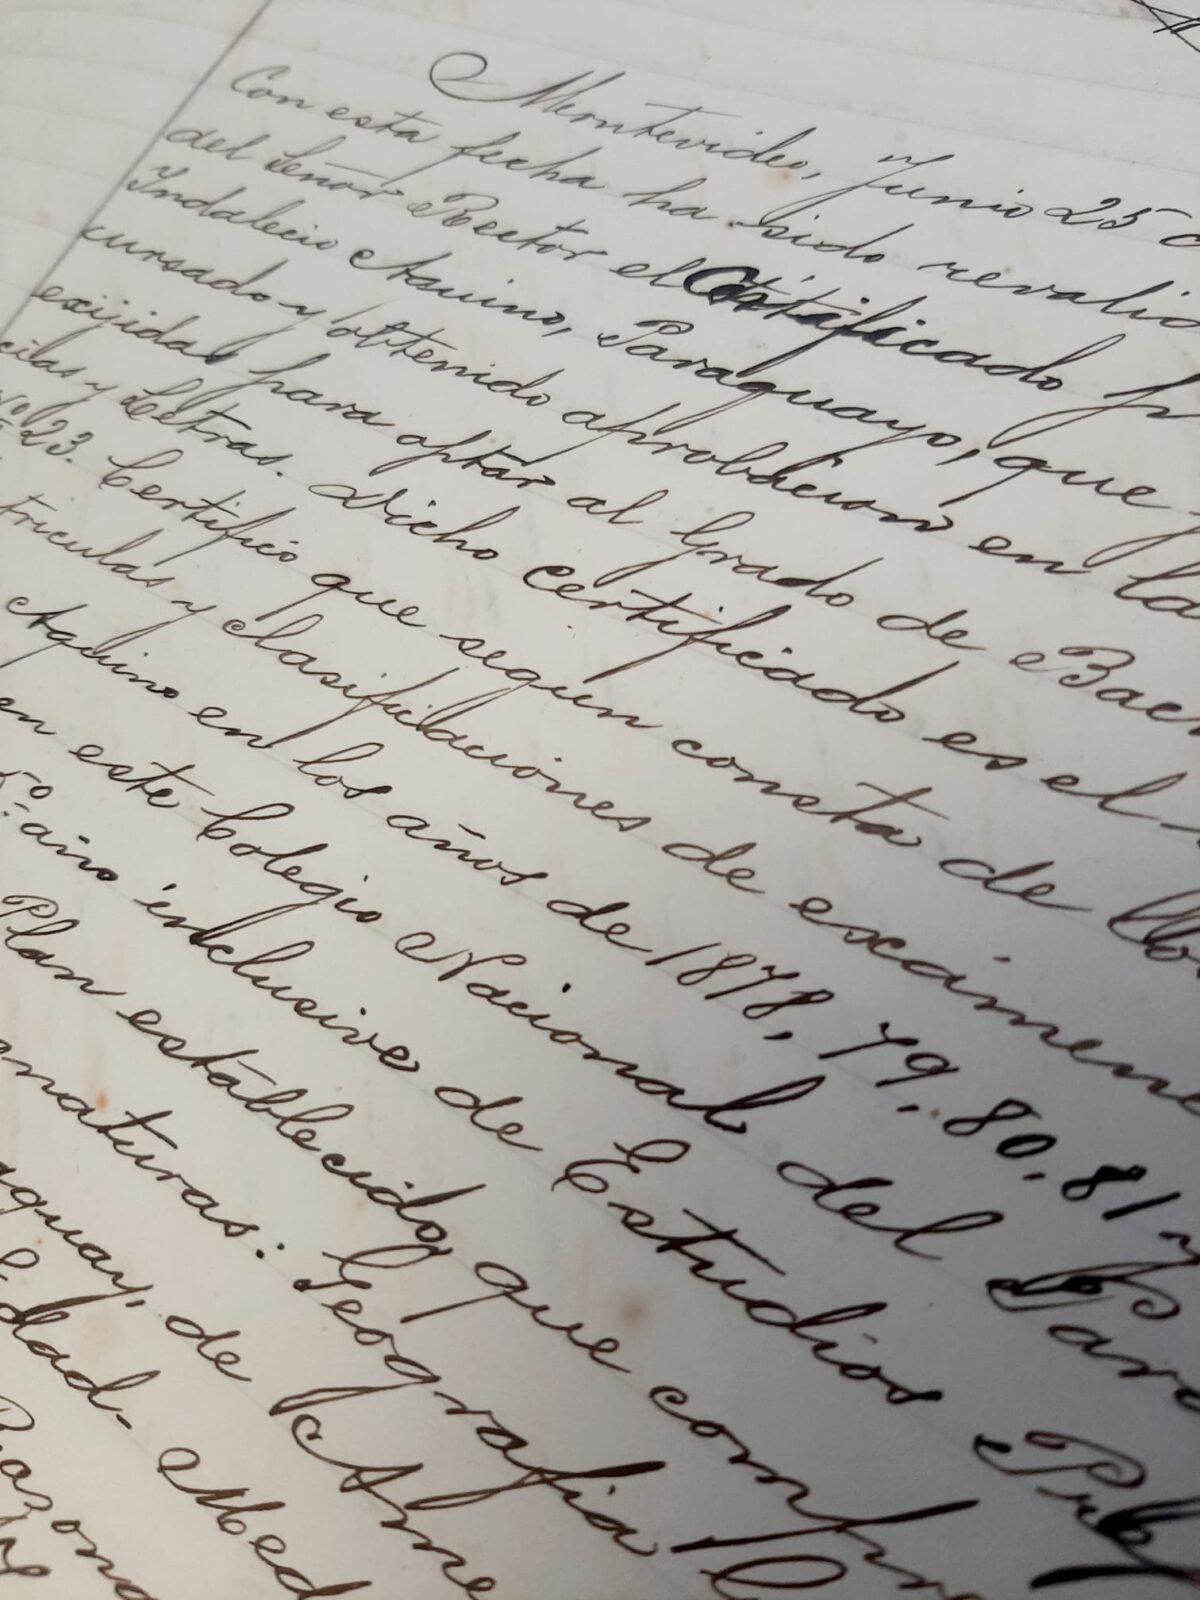 Montevideo, Junio 25 d
Con esta fecha ha sido revalid
del Señor Rector el Certificado p
Indalecio Aquino, Paraguayo, que
cursado y obtenido aprobacion en la
exijidas para optar al Grado de Bach
cias y Letras. Dicho certificado es el
Nº 23. Certifico que segun consta de llos
triculas y clasificaciones de exámene
Aquino en los años de 1878, 79. 80. 81 y
en este Colegio Nacional del Para
5º año inclusive de Estudios Prep
Plan establecido que compre
gnaturas: Geografia
aguay, de Ame
dad. Med
Razona